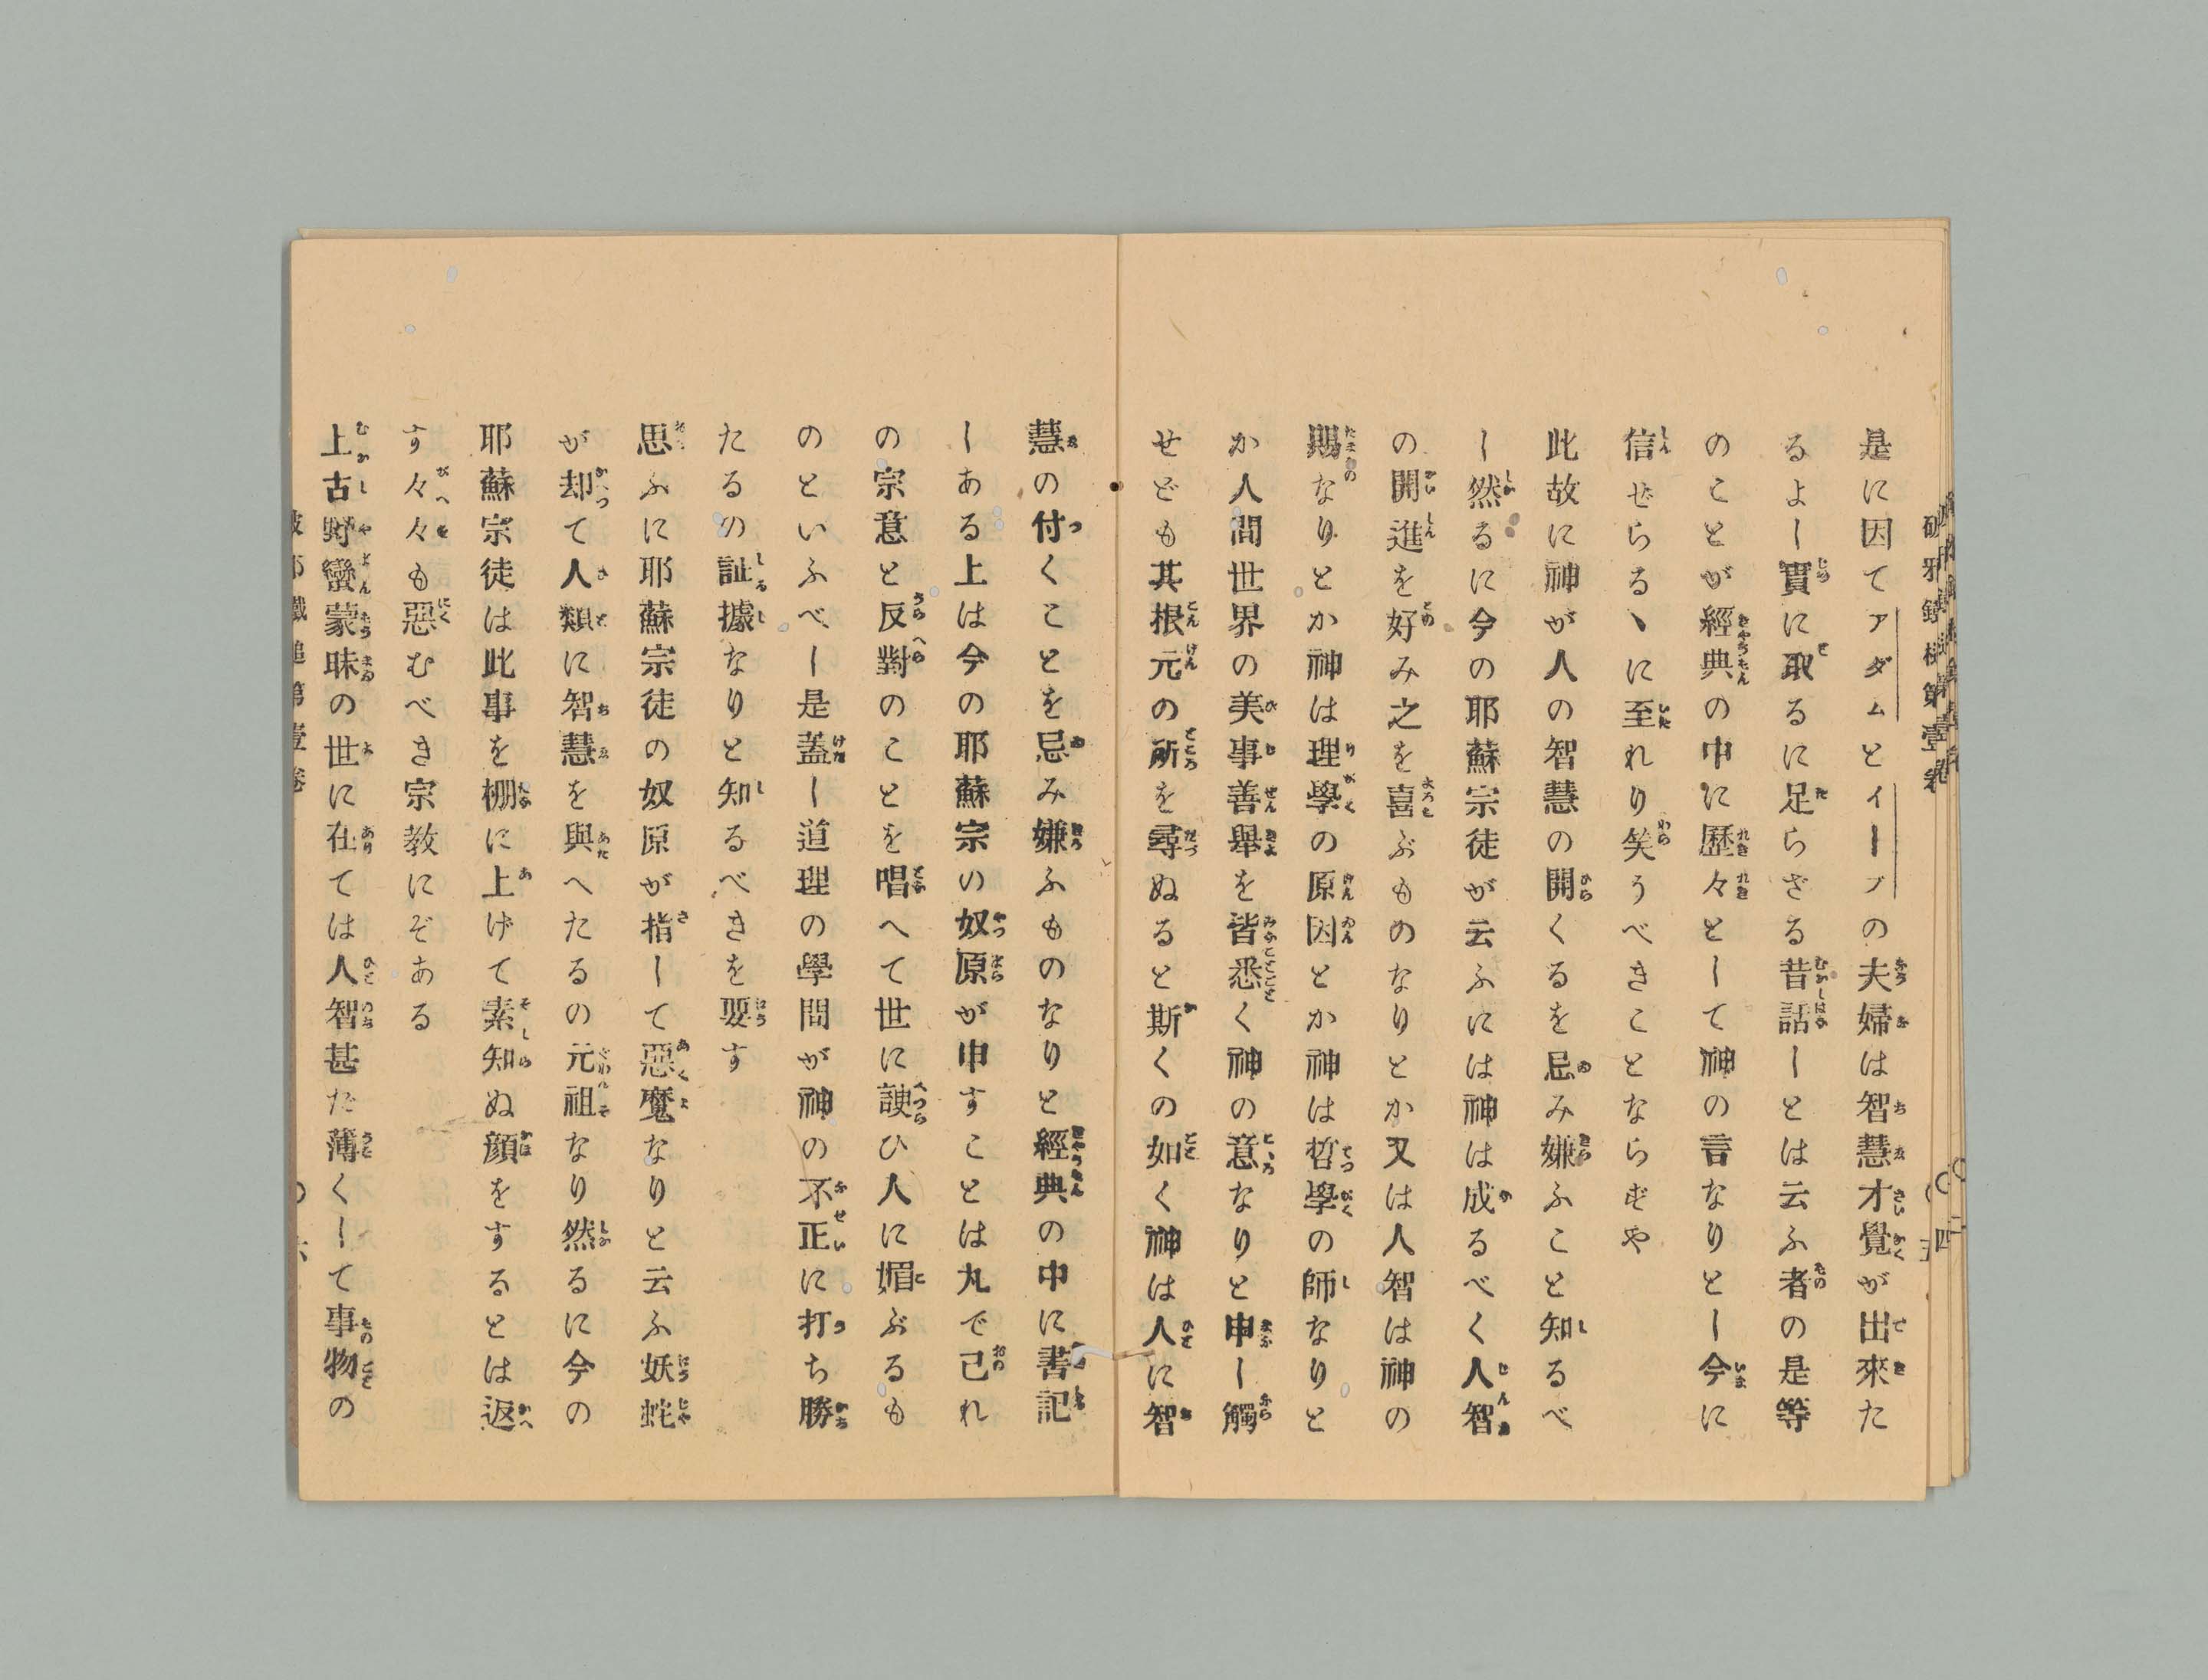 是に因てアダムとイーブの夫婦は智慧才覺が出來た
るよし實に取るに足らざる昔話しとは云ふ者の是等
のことが經典の中に歷々として神の言なりとし今に
信ぜらるヽに至れり笑うべきことならずや
此故に神が人の智慧の開くるを忌み嫌ふこと知るべ
し然るに今の耶蘇宗徒が云ふには神は成るべく人智
の開進を好み之を喜ぶものなりとか又は人智は神の
賜なりとか神は理學の原因とか神は哲學の師なりと
か人間世界の美事善擧を皆悉く神の意なりと申し觸
せども其根元の所を尋ぬると斯くの如く神は人に智
慧の付くことを忌み嫌ふものなりと經典の中に書記
しある上は今の耶蘇宗の奴原が申すことは丸で己れ
の宗意と反對のことを唱へて世に諛ひ人に媚ぶるも
のといふべし是蓋し道理の學問が神の不正に打ち勝
たるの証據なりと知るべきを要す
思ふに耶蘇宗徒の奴原が指して惡魔なりと云ふ妖蛇
が却て人類に智慧を與へたるの元祖なり然るに今の
耶蘇宗徒は此事を棚に上げて素知ぬ顔をするとは返
す々々も惡むべき宗教にぞある
上古野蠻蒙昧の世に在ては人智甚た薄くして事物の